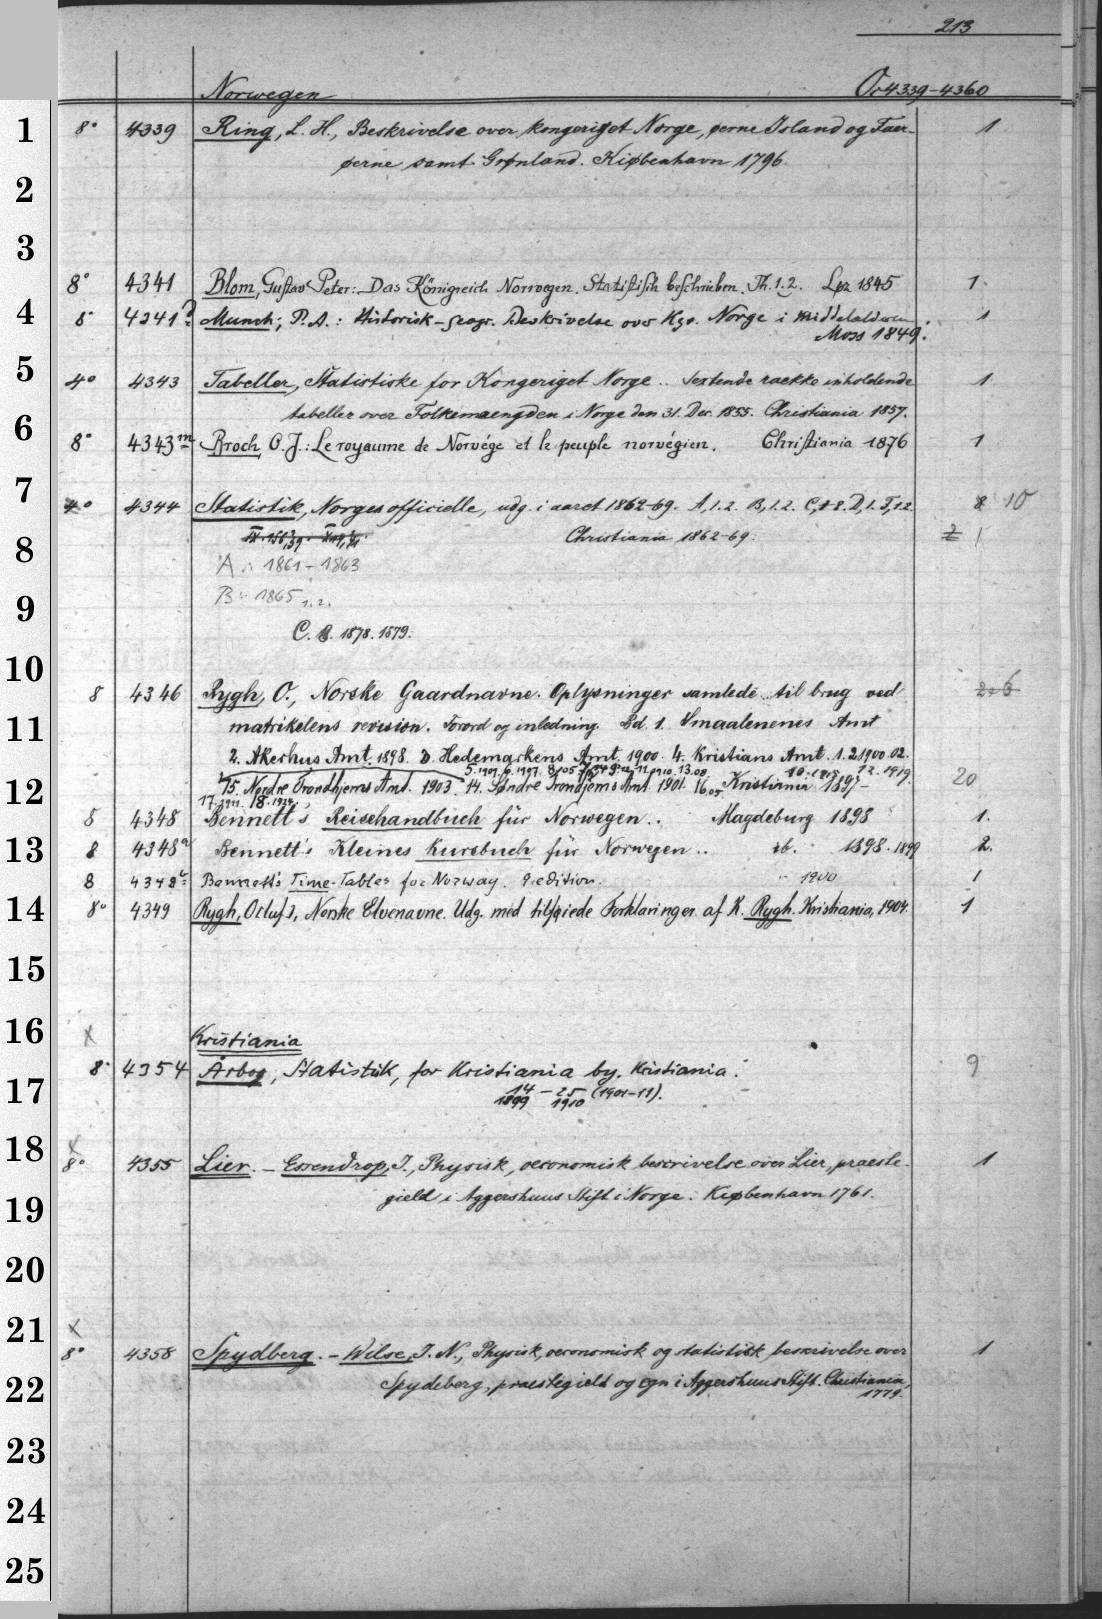 213
Norwegen Or 4339-4360
1 8° 4339 Ring, L. H., Beskrivelse over kongeriget Norge, øerne Island og Faer- 1
øerne samt Grønland. Kiøbenhavn 1796.
2
3
8° 4341 Blom, Gustav Peter: Das Königreich Norwegen. Statistisch beschrieben. Th. 1.2. Lpz 1845 1.
4 8° 4241 Munch, P. A.: Historisk-geogr. Beskrivelse over Kgr. Norge i Middelalderen 1
Moss 1849.
5 4° 4343 Tabeller, Statistiske for Kongeriget Norge.. Sextende raekke inholdende 1.
6 tabeller over Folkemaengden i Norge den 31. Dec. 1855. Christiania 1857.
8° 4343m Broch, O. J.: Le royaume de Norvége et le peuple norvégien. Christiania 1876 1
7 4° 4344 Statistik, Norges officielle, udg. i aaret 1862-69. A,1.2. B,1.2. C,1-2. D,1. F,1.2. 8 10
8 Christiania 1862-69. 2 1
A.: 1861-1863
9 B: 1865 1.2.
C. 8. 1878. 1879.
10
8 4346 Rygh, O., Norske Gaardnavne. Oplysninger samlede til brug ved
11 matrikelens revision. Forord og inledning. Bd. 1. Smaalenenes Amt
2. Akerhus Amt. 1898. 3. Hedemarkens Amt. 1900. 4. Kristians Amt. 1.2.1900.02.
12 15. Nordre Trondhjems Amt. 1903. 14. Søndre Trondjems Amt. 1901. 16.05. Kristiania 1897- 20
17.1911. 18.1924.
8 4348 Bennett's Reisehandbuch für Norwegen.. Magdeburg 1898 1.
13 8 4348a Bennett's Kleines Kursbuch für Norwegen.. ib. 1898. 1899 2.
8 4348b Bennett's Time-Tables for Norway. 9. edition. " 1900 1
14 8° 4349 Rygh, O(luf), Norske Elvenavne. Udg. med tilføiede Forklaringer af K. Rygh. Kristiania, 1904. 1
15
16 x Kristiania
8° 4354 Årbog, Statistik, for Kristiania by. Kristiania. 9
17 14 - 25 (1901-11).
1899 1910
18 x
8° 4355 Lier. - Essendrop, J., Physisk, oeconomisk bescrivelse over Lier, praeste- 1
19 gield i Aggershuus Stift i Norge. Kiøbenhavn 1761.
20
21 x
8° 4358 Spydberg. - Wilse, J. N., Physisk, oeconomisk og statistisk beskrivelse over 1
22 Spydeberg, praestegield og egn i Aggershuus Stift. Christiania,
1779.
23
24
25